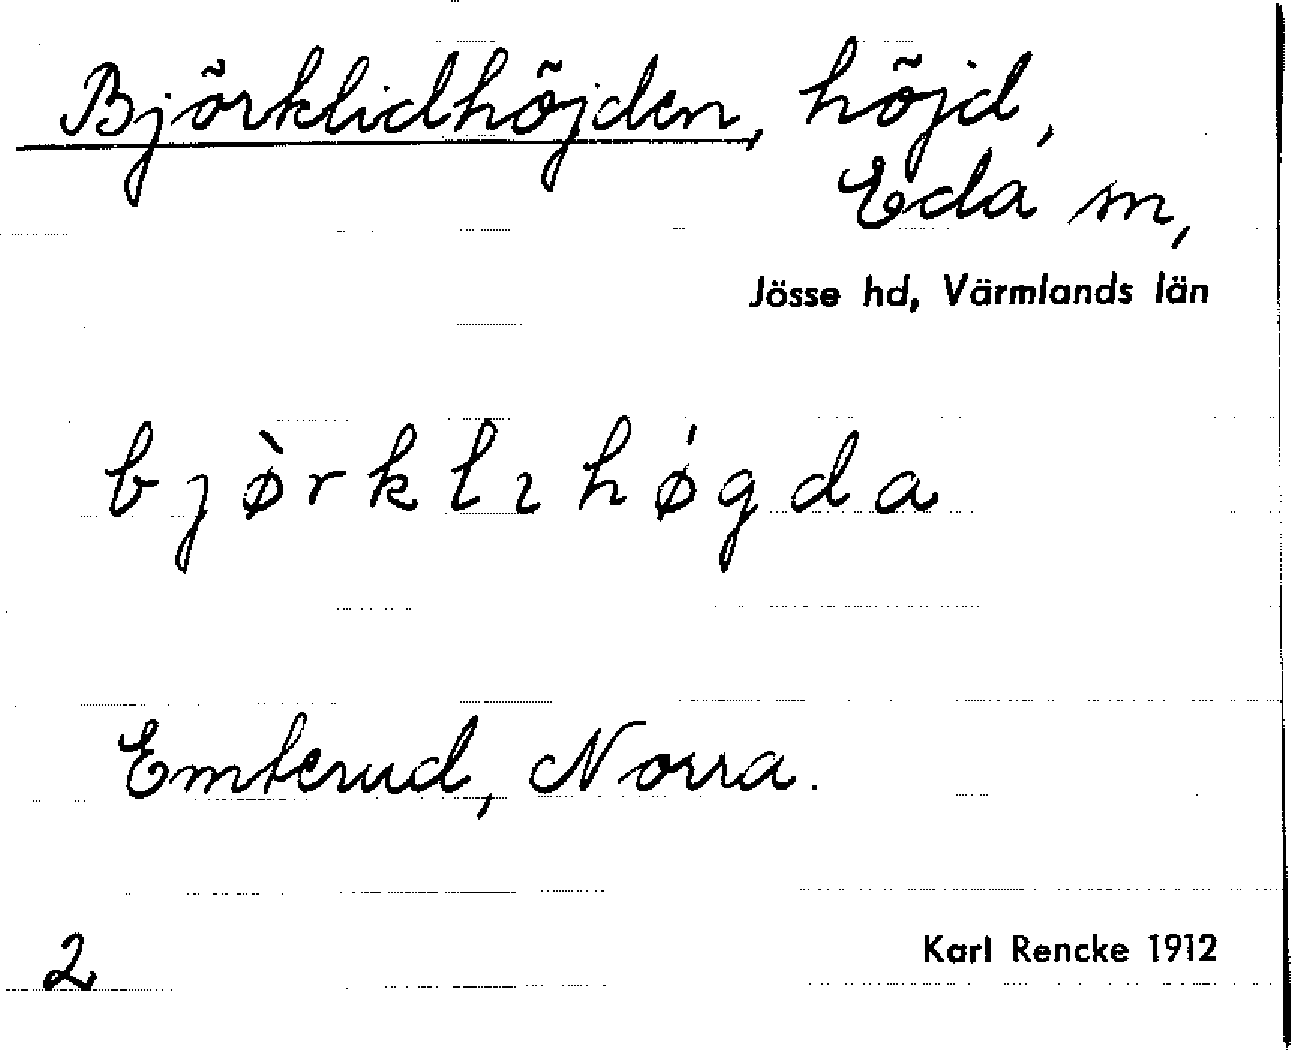 Björklidhöjden, höjd,
Eda sn,
Jösse hd, Värmlands län
bjø̀rklıhǿgda
Emterud, Norra.
2
Karl Rencke 1912